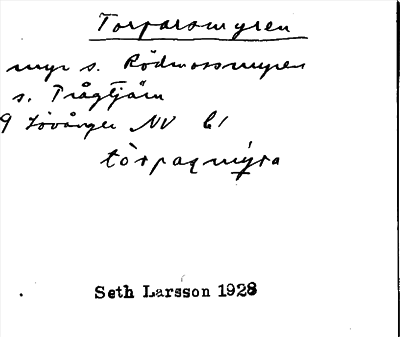 Torparsmyren
myr s. Rödmossmyren
s. Trågtjärn
9 Lövånger NV b1
tòrpaʂmýra
Seth Larsson 1928